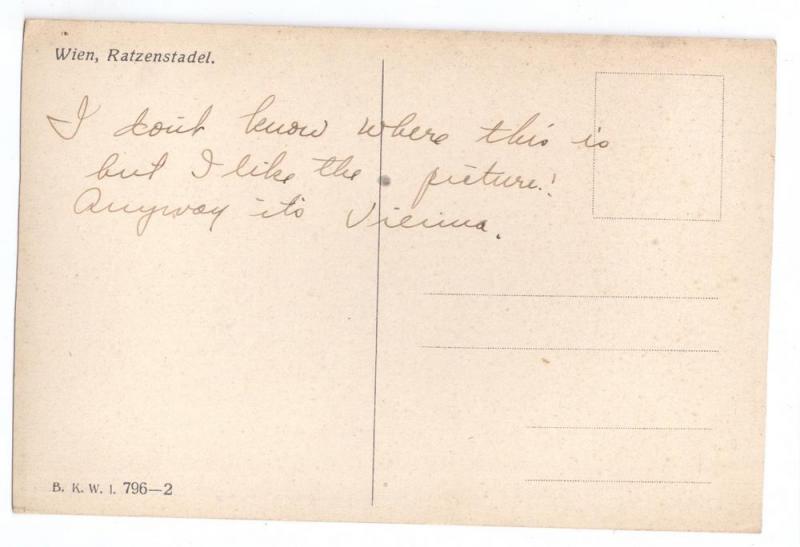 Wien, Ratzenstadel.
I don't know where this is
but I like the picture!
Anyway it's Vienna.
B. K. W. I. 796—2